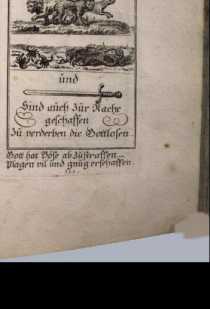 und
Sind auch zür Rache
geschaffen
zu verderben die Gottlosen
Gott hat Böse abzüstraffen
Plagen vil und gnüg erschaffen.